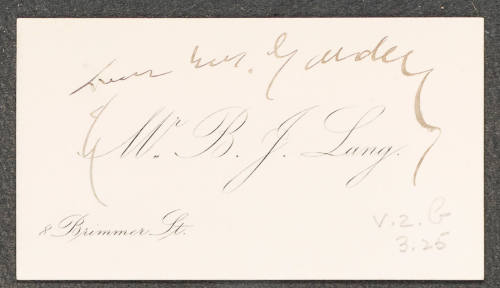 Dear Mrs. Gardner
Mr. B. J. Lang.
8 Brimmer St.
v.2.b
3.25